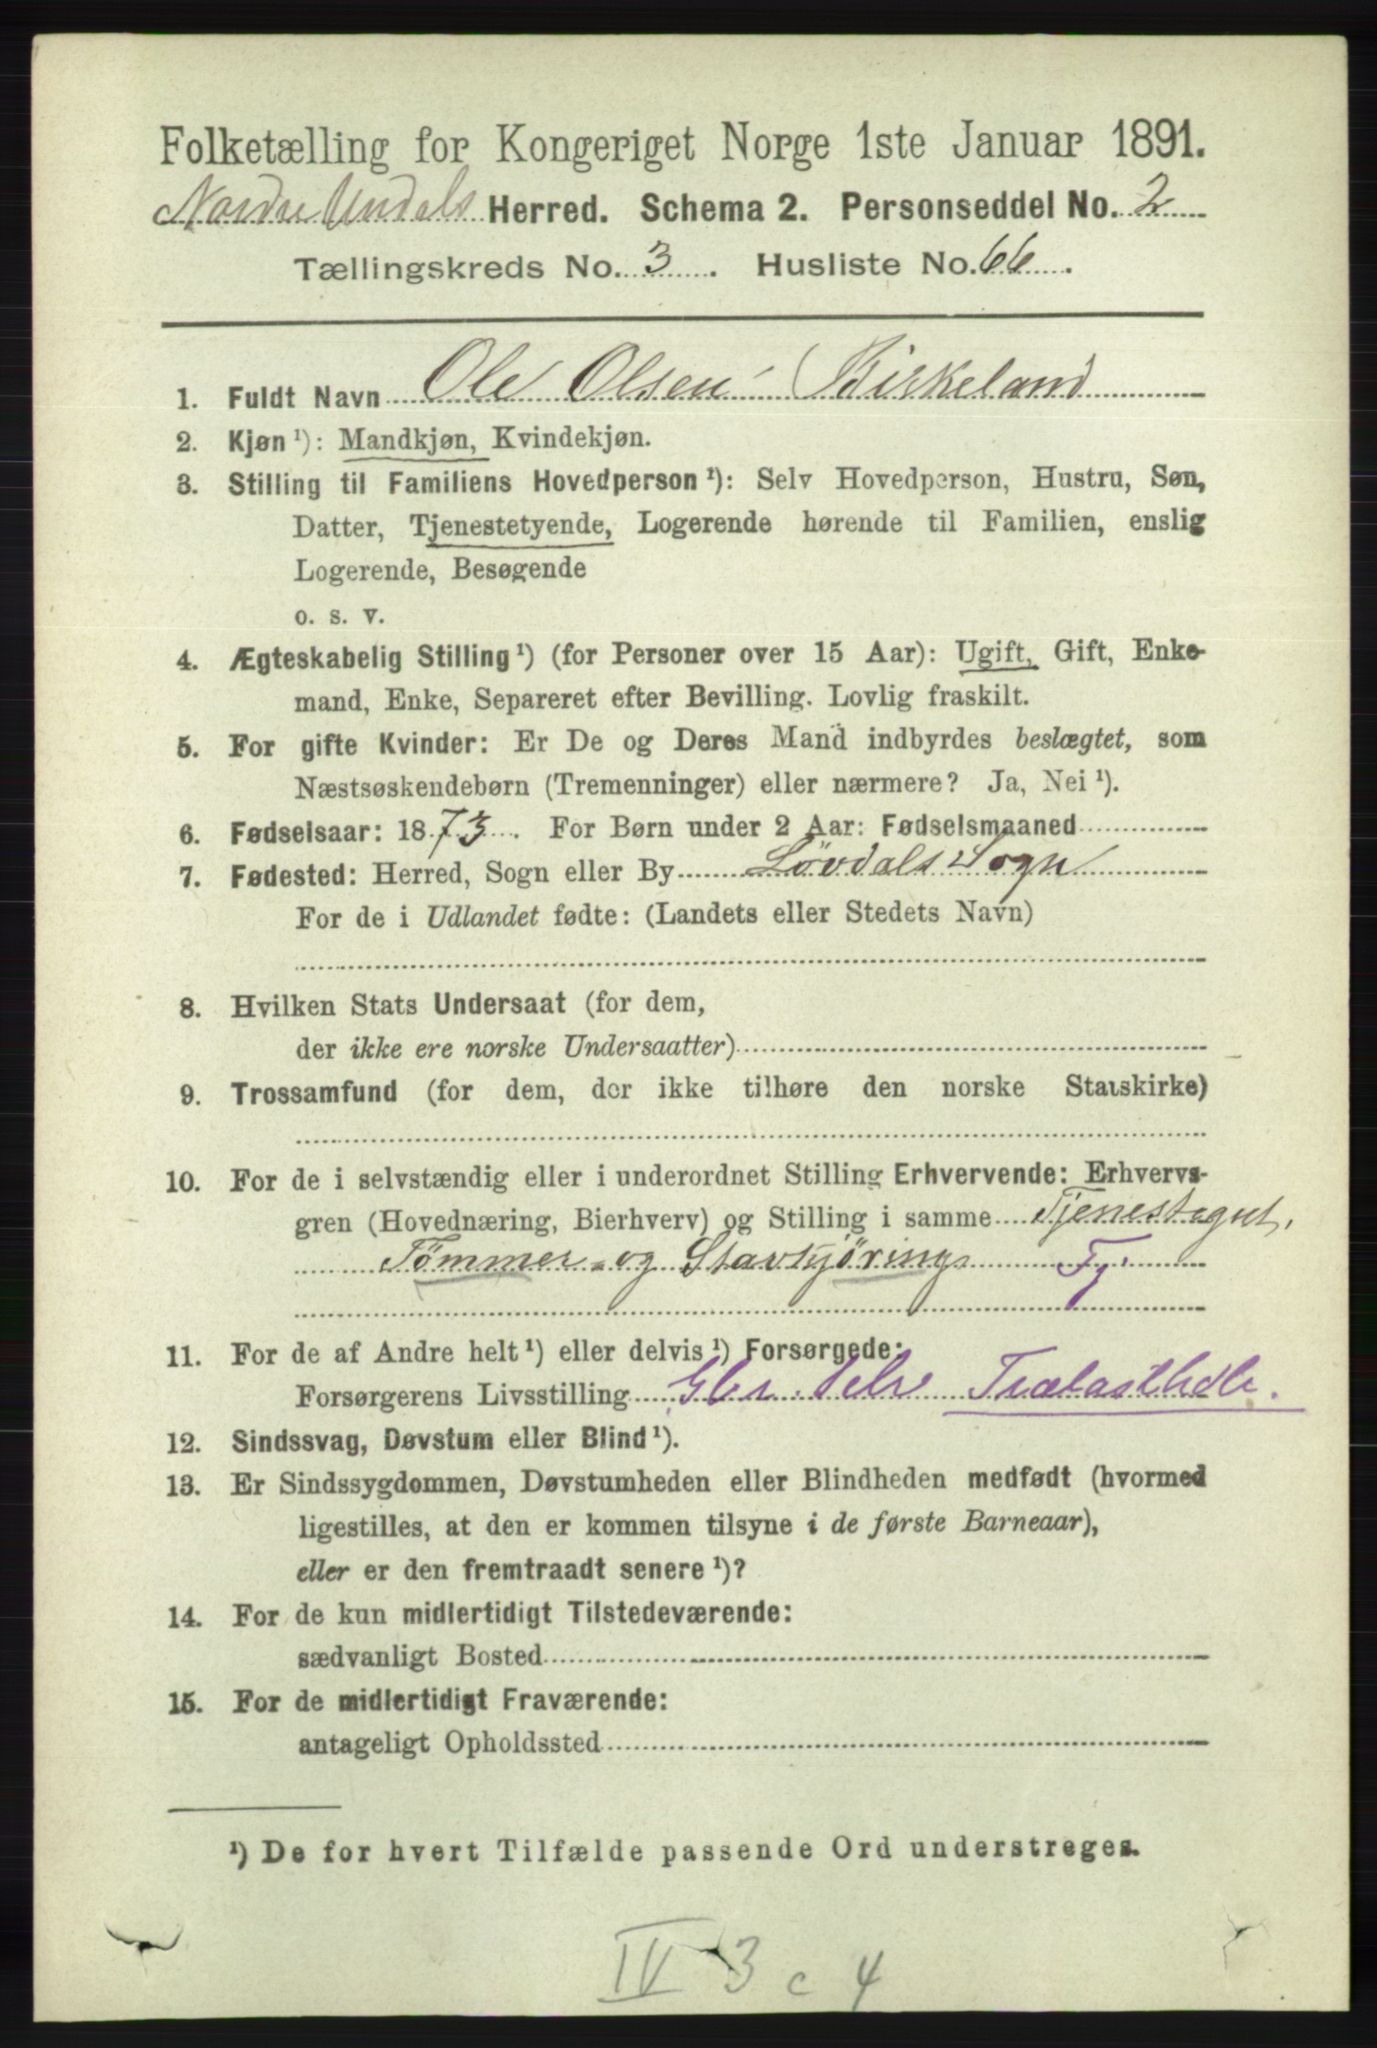 Folketælling for Kongeriget Norge 1ste Januar 1891.
Nordre Undals Herred. Schema 2. Personseddel No. 2
Tællingskreds No. 3. Husliste No. 66.
1. Fuldt Navn Ole Olsen Birkeland
2. Kjøn ¹): Mandkjøn, Kvindekjøn.
3. Stilling til Familiens Hovedperson ¹): Selv Hovedperson, Hustru, Søn,
Datter, Tjenestetyende, Logerende hørende til Familien, enslig
Logerende, Besøgende
o. s. v.
4. Ægteskabelig Stilling ¹) (for Personer over 15 Aar): Ugift, Gift, Enke-
mand, Enke, Separeret efter Bevilling. Lovlig fraskilt.
5. For gifte Kvinder: Er De og Deres Mand indbyrdes beslægtet, som
Næstsøskendebørn (Tremenninger) eller nærmere? Ja, Nei ¹).
6. Fødselsaar: 1873. For Børn under 2 Aar: Fødselsmaaned
7. Fødested: Herred, Sogn eller By Løvdals Sogn
For de i Udlandet fødte: (Landets eller Stedets Navn)
8. Hvilken Stats Undersaat (for dem,
der ikke ere norske Undersaatter)
9. Trossamfund (for dem, der ikke tilhøre den norske Statskirke)
10. For de i selvstændig eller i underordnet Stilling Erhvervende: Erhvervs-
gren (Hovednæring, Bierhverv) og Stilling i samme Tjenestegut,
Tømmer- og Stavkjøring Tj
11. For de af Andre helt ¹) eller delvis ¹) Forsørgede:
Forsørgerens Livsstilling Trælasthdlr.
12. Sindssvag, Døvstum eller Blind ¹).
13. Er Sindssygdommen, Døvstumheden eller Blindheden medfødt (hvormed
ligestilles, at den er kommen tilsyne i de første Barneaar),
eller er den fremtraadt senere ¹)?
14. For de kun midlertidigt Tilstedeværende:
sædvanligt Bosted
15. For de midlertidigt Fraværende:
antageligt Opholdssted
¹) De for hvert Tilfælde passende Ord understreges.
IV 3 c 4